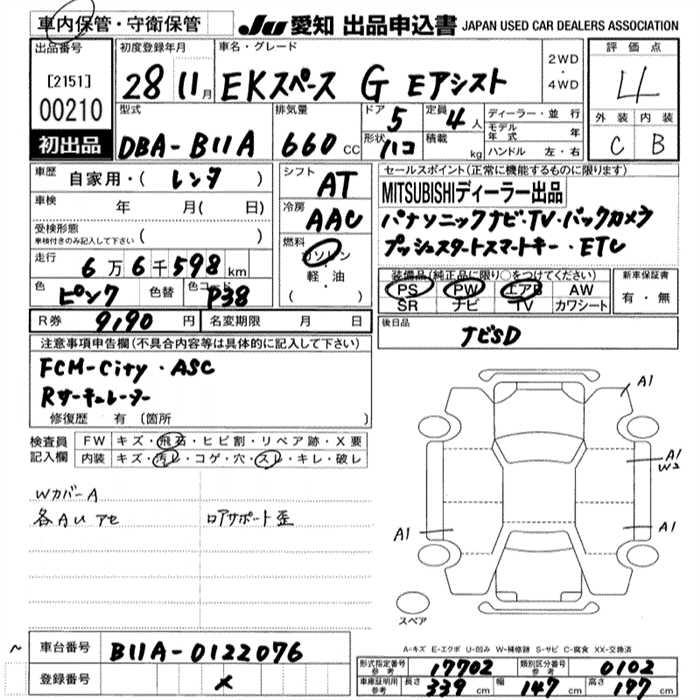 車内保管・守衛保管 JU 愛知 出品申込書 JAPAN USED CAR DEALERS ASSOCIATION
出品番号 初度登録年月 車名・グレード 2WD・4WD 評価点
[2151] 28 11月 EKスペース G Eアシスト 4
00210 型式 排気量 ドア 5 定員 4人 ディーラー・並行 外装 内装
初出品 DBA-B11A 660cc 形状 ハコ 積載 kg モデル年式 年 C B
ハンドル 左・右
車歴 自家用・( レンタ ) シフト AT セールスポイント(正常に機能するものに限ります)
車検 年 月( 日) 冷房 AAC MITSUBISHIディーラー出品
受検形態 ( ) パナソニックナビ・TV・バックカメラ
車検付きのみ記入して下さい 燃料 ガソリン プッシュスタートスマートキー・ETC
走行 6万6千598km 軽・油 装備品(純正品に限り○をつけてください) 新車保証書
色 ピンク 色替 色コード P38 ・( ) PS PW エアB AW 有・無
SR ナビ TV カワシート
R券 9,190円 名変期限 月 日 後日品 ナビSD
注意事項申告欄(不具合内容等は具体的に記入して下さい)
FCM-City・ASC
Rサーキュレーター
修復歴 有 (箇所 )
検査員 FW キズ・飛石・ヒビ割・リペア跡・X要
記入欄 内装 キズ・汚レ・コゲ・穴・スレ・キレ・破レ
A1
A1
W2
WカバーA
各AUアセ ロアサポート歪
A1 A1
スペア
A-キズ E-エクボ U-凹み W-補修跡 S-サビ C-腐食 XX-交換済
~ 車台番号 B11A-0122076
登録番号 ×
形式指定番号 参考 17702 類別区分番号 参考 0102
車庫証明用 参考 長さ 339cm 幅 147cm 高さ 177cm